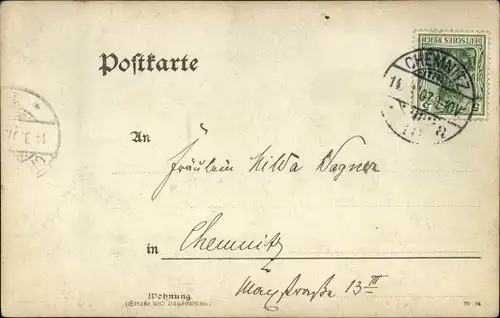 DEUTSCHES REICH
CHEMNITZ
Postkarte
An
Fräulein Hilda Wagner
in Chemnitz
Wohnung
(Straße und Hausnummer)
Maxstraße 13 III